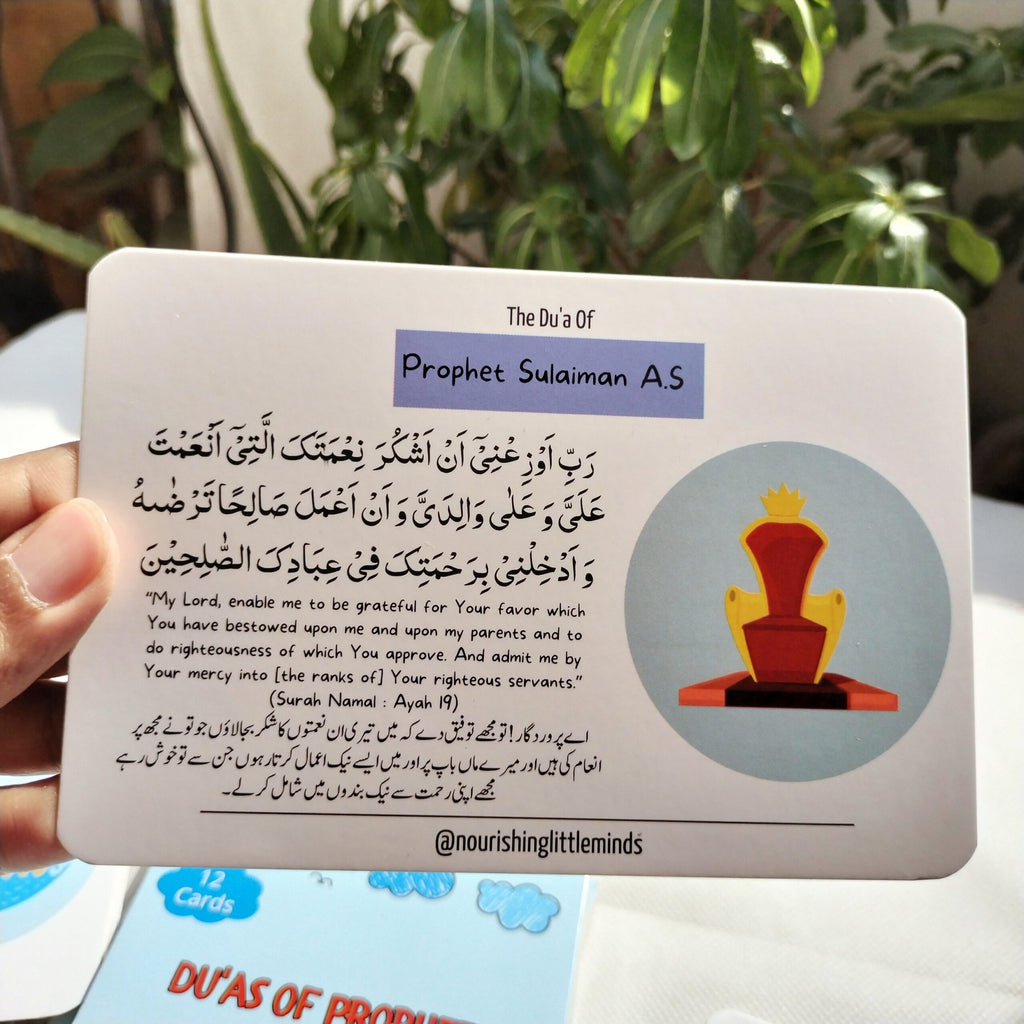 The Du'a Of
Prophet Sulaiman A.S
رَبِّ اَوْزِعْنِیْۤ اَنْ اَشْكُرَ نِعْمَتَكَ الَّتِیْۤ اَنْعَمْتَ
عَلَیَّ وَ عَلٰی وَالِدَیَّ وَ اَنْ اَعْمَلَ صَالِحًا تَرْضٰىهُ
وَ اَدْخِلْنِیْ بِرَحْمَتِكَ فِیْ عِبَادِكَ الصّٰلِحِیْنَ
"My Lord, enable me to be grateful for Your favor which
You have bestowed upon me and upon my parents and to
do righteousness of which You approve. And admit me by
Your mercy into [the ranks of] Your righteous servants."
(Surah Namal : Ayah 19)
اے پروردگار! تو مجھے توفیق دے کہ میں تیری ان نعمتوں کا شکر بجا لاؤں جو تو نے مجھ پر
انعام کی ہیں اور میرے ماں باپ پر اور میں ایسے نیک اعمال کرتا رہوں جن سے تو خوش رہے
مجھے اپنی رحمت سے نیک بندوں میں شامل کر لے۔
@nourishinglittleminds
12
Cards
DU'AS OF